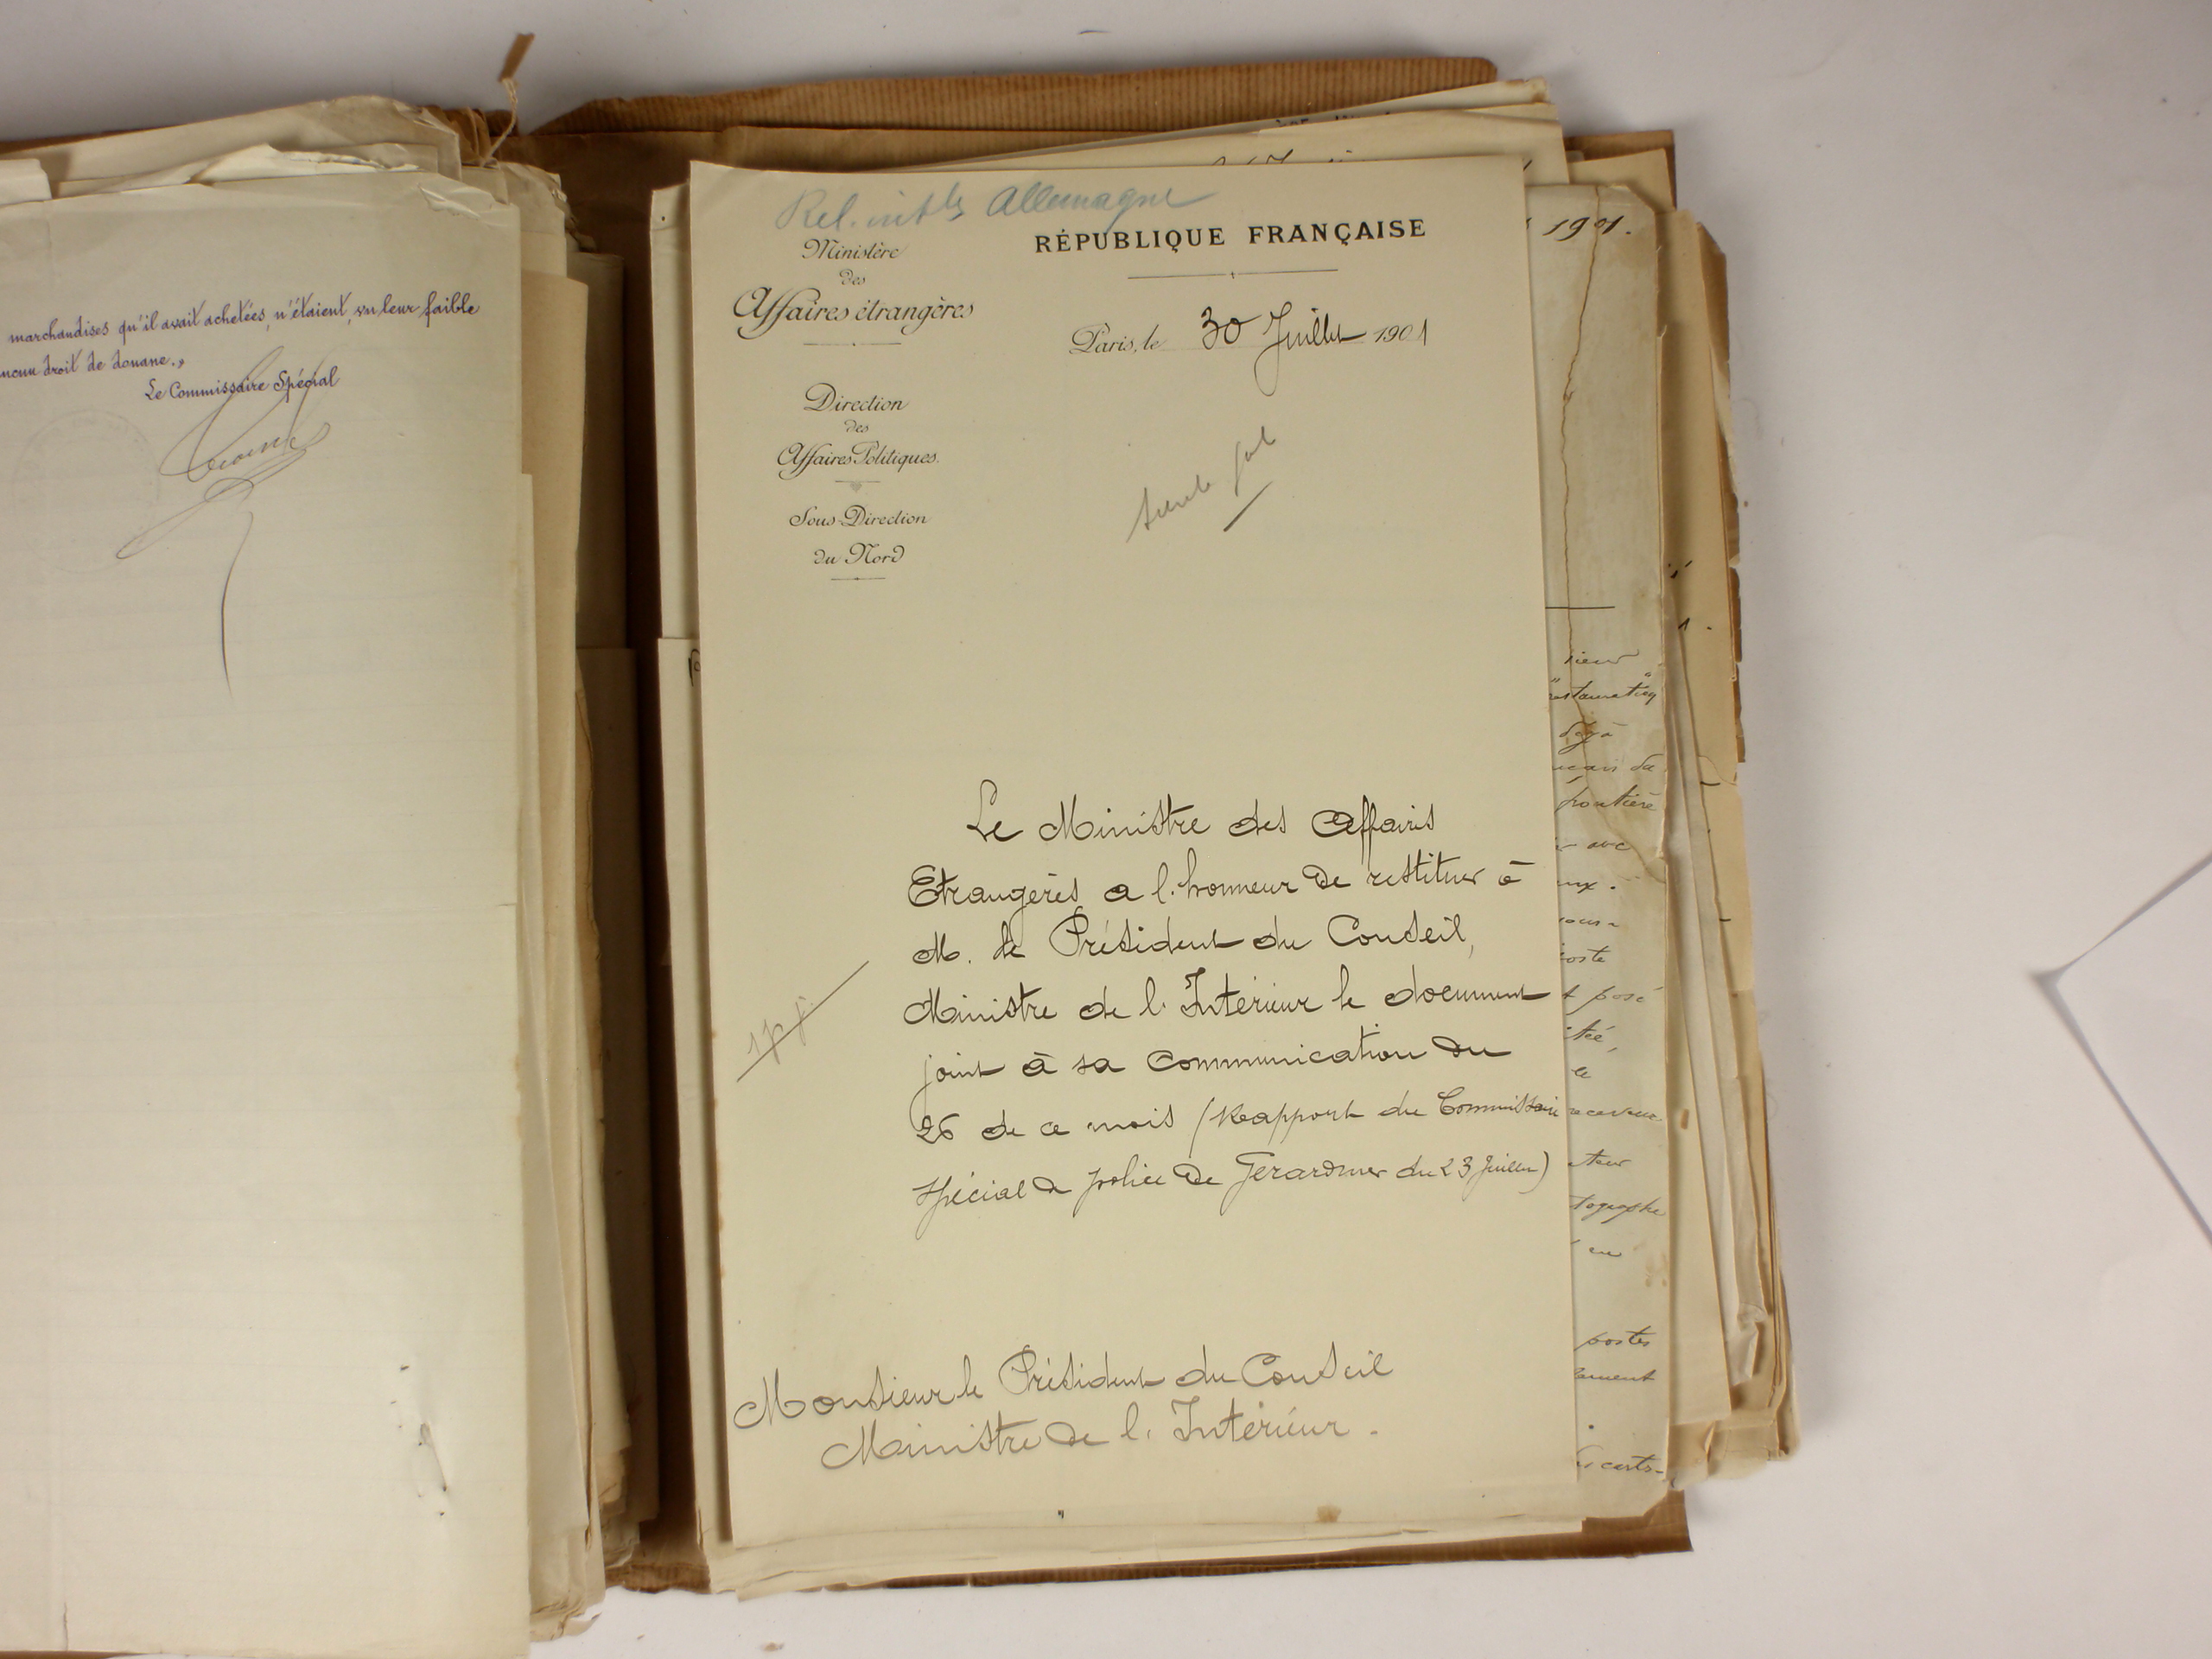 marchandises qu'il avait achetées, n'étaient, vu leur faible
aucun droit de douane.
Le Commissaire Spécial
Rel. intles Allemagne
Ministère
des
Affaires étrangères
RÉPUBLIQUE FRANÇAISE
Paris, le 30 Juillet 1901
Direction
des
Affaires Politiques.
Sous-Direction
du Nord
Le Ministre des Affaires
Etrangères a l'honneur de restituer à
M. le Président du Conseil,
Ministre de l'Intérieur le document
joint à sa communication du
26 de ce mois (Rapport du Commissaire
spécial de police de Gérardmer du 23 Juillet)
1 p. j.
Monsieur le Président du Conseil
Ministre de l'Intérieur.
1901.
sieur
restauration"
déjà
frontière
avec
poste
posé
le
receveur
en
postes